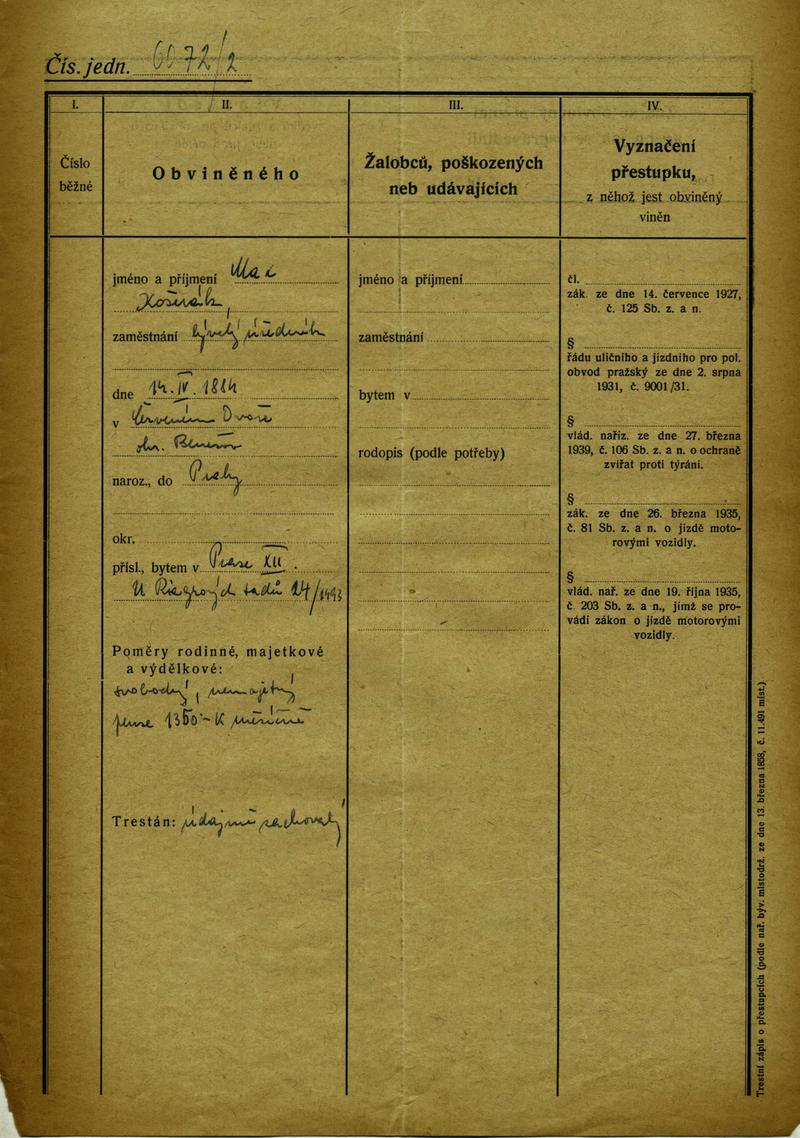 Čís. jedn. 6072/2
I.
II.
III.
IV.
Číslo
běžné
Obviněného
Žalobců, poškozených
neb udávajících
Vyznačení
přestupku,
z něhož jest obviněný
viněn
jméno a příjmení
zaměstnání bývalý úředník
dne 14. IV. 1884
v Dvoře
naroz., do Prahy
okr.
přísl., bytem v Praze XII
U Riegrových sadů
Poměry rodinné, majetkové
a výdělkové:
svobodný, nemajetný
K měsíčně
Trestán: údajně zachovalý
jméno a příjmení
zaměstnání
bytem v
rodopis (podle potřeby)
čl.
zák. ze dne 14. července 1927,
č. 125 Sb. z. a n.
§
řádu uličního a jízdního pro pol.
obvod pražský ze dne 2. srpna
1931, č. 9001/31.
§
vlád. naříz. ze dne 27. března
1939, č. 106 Sb. z. a n. o ochraně
zvířat proti týrání.
§
zák. ze dne 26. března 1935,
č. 81 Sb. z. a n. o jízdě moto-
rovými vozidly.
§
vlád. nař. ze dne 19. října 1935,
č. 203 Sb. z. a n., jímž se pro-
vádí zákon o jízdě motorovými
vozidly.
Trestní zápis o přestupcích (podle nař. býv. místodrž. ze dne 13. března 1858, č. 11.491 míst.)